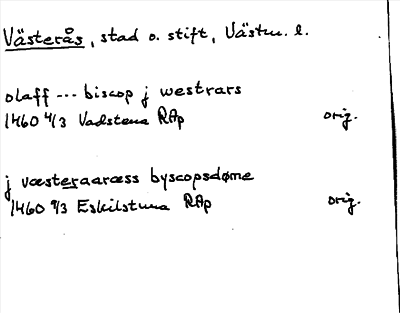 Västerås, stad o. stift, Västm. l.
olaff --- biscop j westrars
1460 4/3 Vadstena RAp orig.
j væsteraaræss byscopsdøme
1460 9/3 Eskilstuna RAp orig.